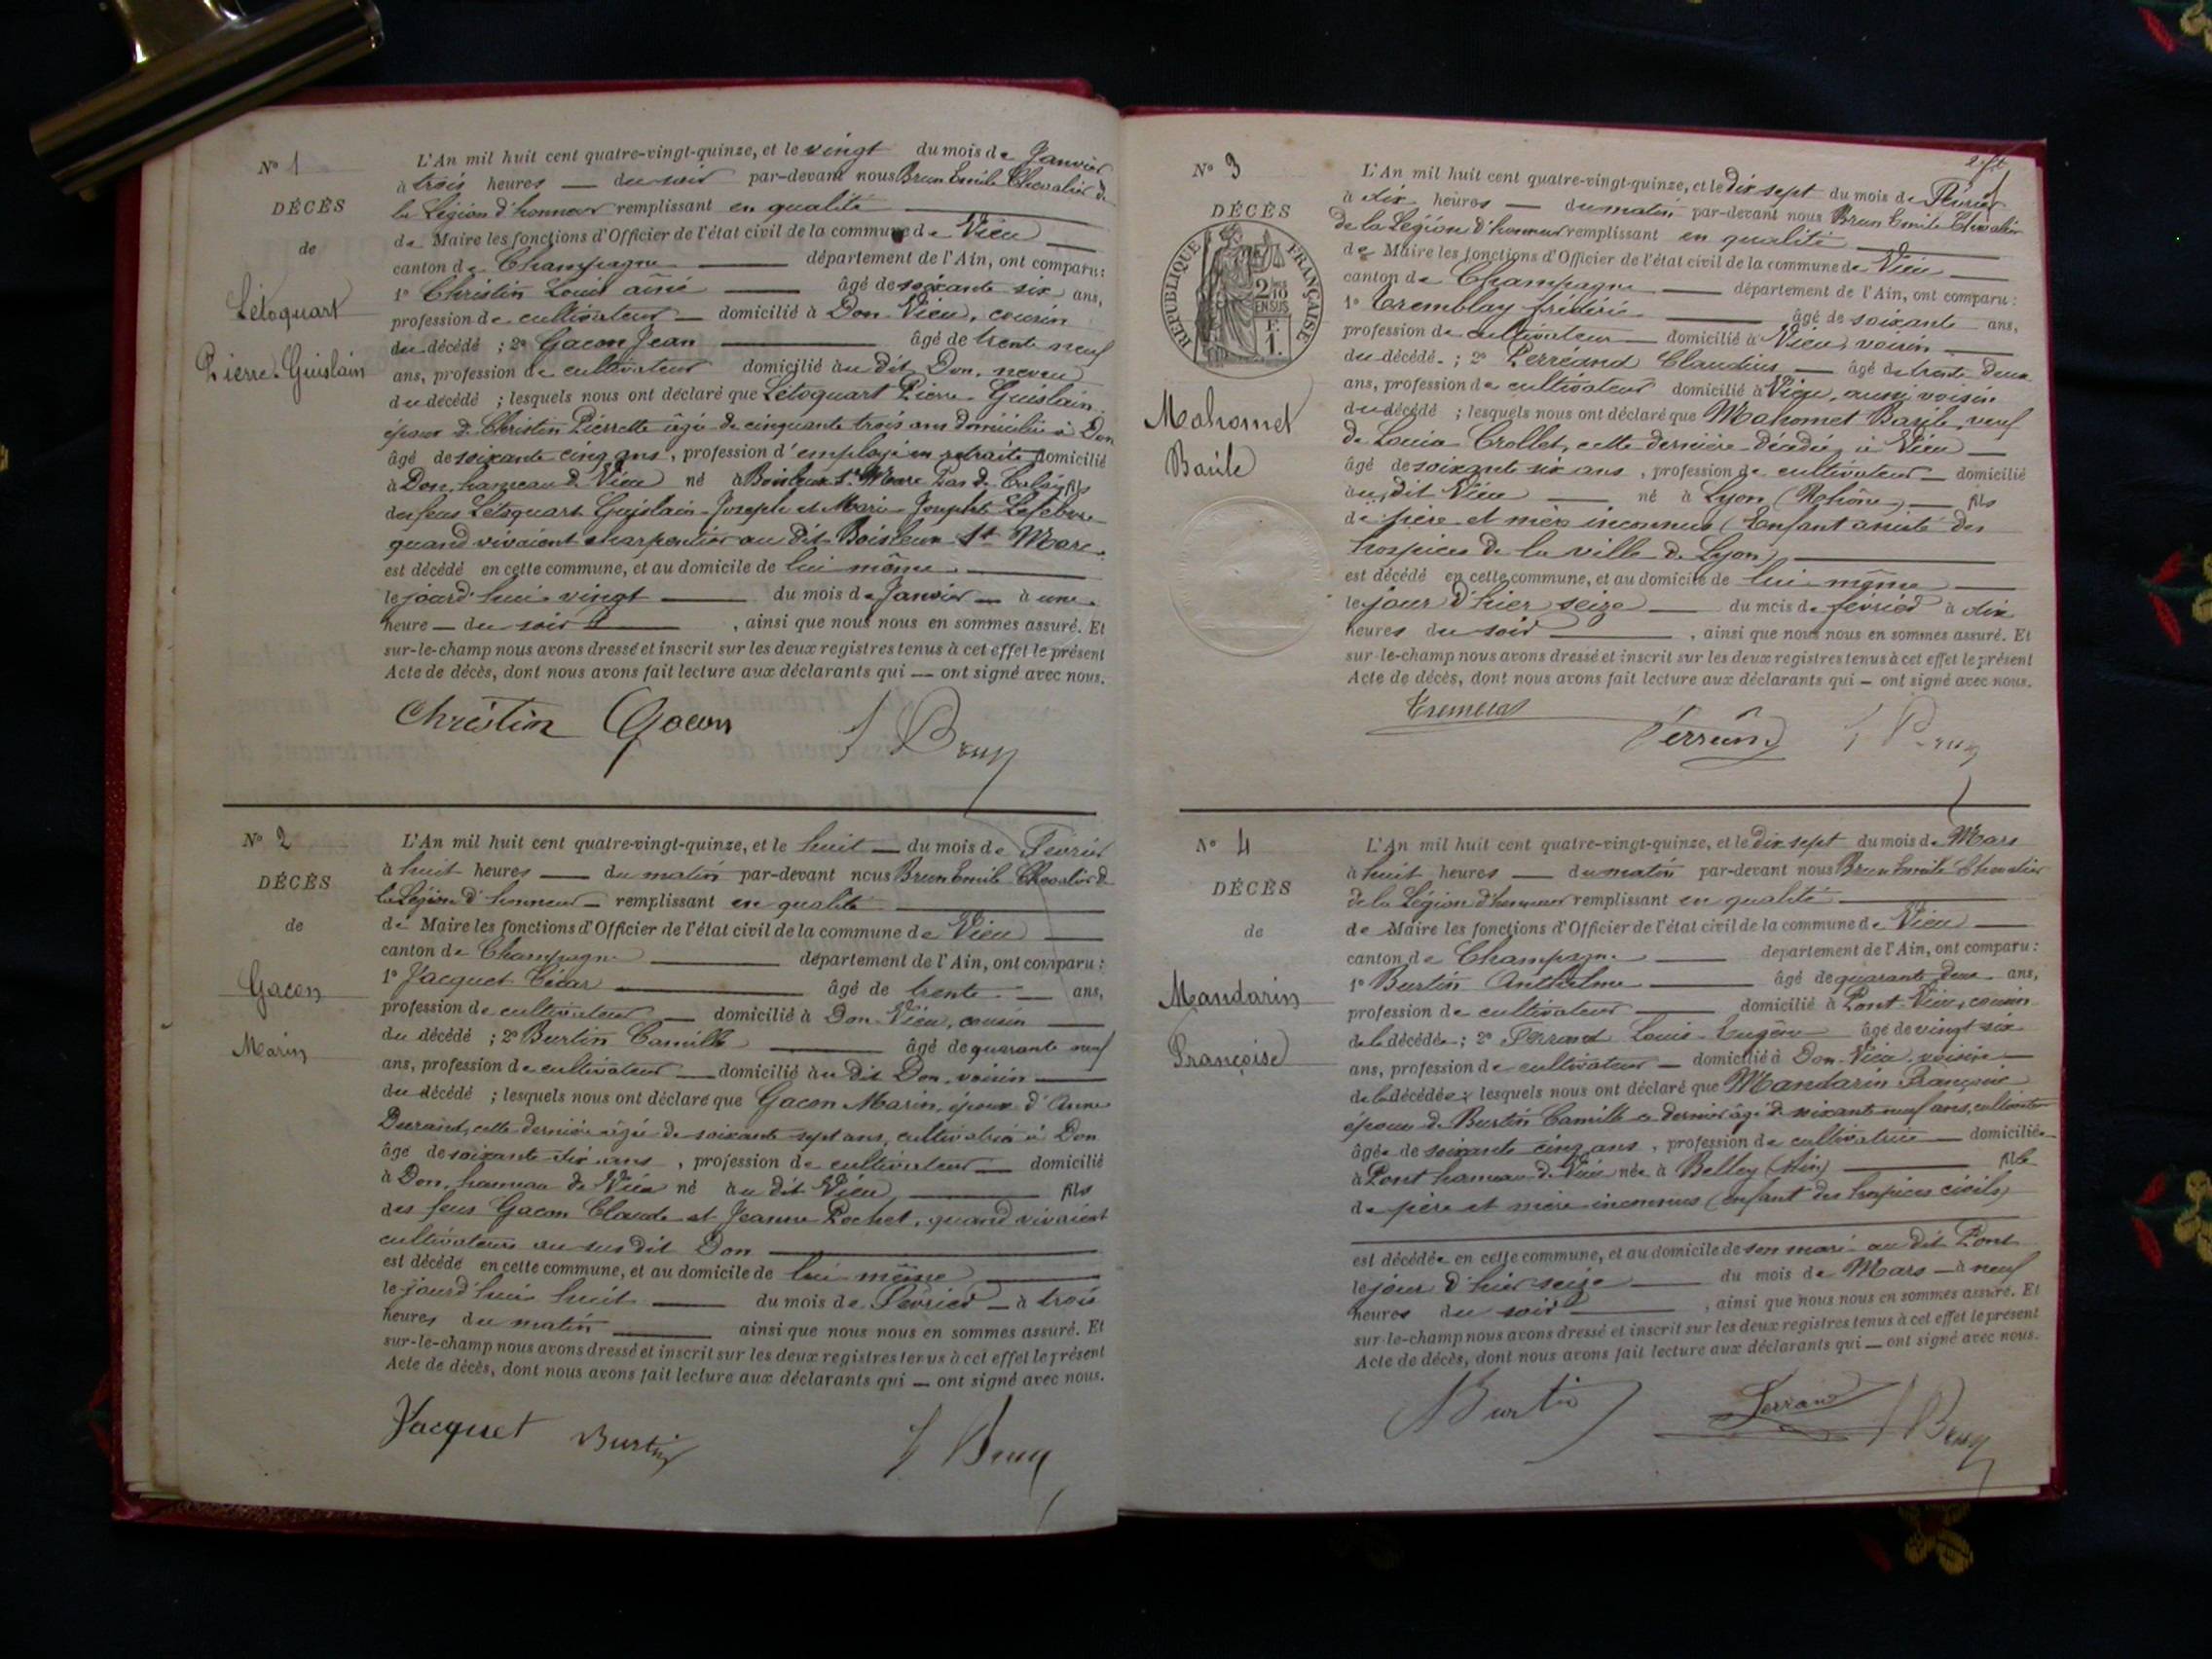 N° 1
DÉCÈS
de
Létoquart
Pierre-Guislain
L'An mil huit cent quatre-vingt-quinze, et le vingt du mois de Janvier
à trois heures — du soir par-devant nous Brun Emile Chevalier de
la Légion d'honneur remplissant en qualité
de Maire les fonctions d'Officier de l'état civil de la commune de Vieu
canton de Champagne département de l'Ain, ont comparu :
1° Christin Louis aîné âgé de soixante six ans,
profession de cultivateur — domicilié à Don-Vieu, cousin
du décédé ; 2° Gacon Jean âgé de trente neuf
ans, profession de cultivateur domicilié au dit Don, neveu
du décédé ; lesquels nous ont déclaré que Létoquart Pierre-Guislain,
époux de Christin Pierrette âgée de cinquante trois ans domiciliée à Don
âgé de soixante cinq ans, profession d'employé en retraite domicilié
à Don, hameau de Vieu né à Boisleux St. Marc Pas de Calais fils
des feus Létoquart Guislain-Joseph et Marie-Josephte Lefebvre
quand vivaient charpentier au dit Boisleux St Marc.
est décédé en cette commune, et au domicile de lui-même
le jourd'hui vingt du mois de Janvier — à une
heure — du soir , ainsi que nous nous en sommes assuré. Et
sur-le-champ nous avons dressé et inscrit sur les deux registres tenus à cet effet le présent
Acte de décès, dont nous avons fait lecture aux déclarants qui — ont signé avec nous.
Christin Gacon Brun
N° 2
DÉCÈS
de
Gacon
Marin
L'An mil huit cent quatre-vingt-quinze, et le huit — du mois de Février
à huit heures — du matin par-devant nous Brun Emile Chevalier de
la Légion d'honneur — remplissant en qualité
de Maire les fonctions d'Officier de l'état civil de la commune de Vieu
canton de Champagne département de l'Ain, ont comparu :
1° Jacquet César âgé de trente — ans,
profession de cultivateur — domicilié à Don-Vieu, cousin
du décédé ; 2° Burtin Camille âgé de quarante neuf
ans, profession de cultivateur — domicilié au dit Don, voisin
du décédé ; lesquels nous ont déclaré que Gacon Marin, époux d'Anne
Durand, cette dernière âgée de soixante sept ans, cultivatrice à Don
âgé de soixante dix ans , profession de cultivateur — domicilié
à Don, hameau de Vieu né au dit Vieu fils
des feus Gacon Claude et Jeanne Pochet, quand vivaient
cultivateurs au susdit Don
est décédé en cette commune, et au domicile de lui-même
le jourd'hui huit du mois de Février — à trois
heures du matin ainsi que nous nous en sommes assuré. Et
sur-le-champ nous avons dressé et inscrit sur les deux registres tenus à cet effet le présent
Acte de décès, dont nous avons fait lecture aux déclarants qui — ont signé avec nous.
Jacquet Burtin Brun
N° 3
DÉCÈS
RÉPUBLIQUE FRANÇAISE
2/10 EN SUS
F. 1.
Mahomet
Basile
L'An mil huit cent quatre-vingt-quinze, et le dix sept du mois de Février
à dix heures — du matin par-devant nous Brun Emile Chevalier
de la Légion d'honneur remplissant en qualité
de Maire les fonctions d'Officier de l'état civil de la commune de Vieu
canton de Champagne département de l'Ain, ont comparu :
1° Tremblay frédéric âgé de soixante ans,
profession de cultivateur domicilié à Vieu, voisin
du décédé ; 2° Perréand Claudius — âgé de trente deux
ans, profession de cultivateur domicilié à Vieu, aussi voisin
du décédé ; lesquels nous ont déclaré que Mahomet Basile, veuf
de Louisa Crollet, cette dernière décédée à Vieu —
âgé de soixante six ans , profession de cultivateur — domicilié
au dit Vieu né à Lyon (Rohône) — fils
de père et mère inconnus (Enfant assisté des
hospices de la ville de Lyon)
est décédé en cette commune, et au domicile de lui-même
le jour d'hier seize du mois de février à dix
heures du soir , ainsi que nous nous en sommes assuré. Et
sur-le-champ nous avons dressé et inscrit sur les deux registres tenus à cet effet le présent
Acte de décès, dont nous avons fait lecture aux déclarants qui — ont signé avec nous.
Brun
N° 4
DÉCÈS
de
Mandarin
Françoise
L'An mil huit cent quatre-vingt-quinze, et le dix sept du mois de Mars
à huit heures — du matin par-devant nous Brun Emile Chevalier
de la Légion d'honneur remplissant en qualité
de Maire les fonctions d'Officier de l'état civil de la commune de Vieu
canton de Champagne département de l'Ain, ont comparu :
1° Burtin Anthelme âgé de quarante deux ans,
profession de cultivateur domicilié à Pont-Vieu, cousin
de la décédée ; 2° Ferrand Louis-Eugène âgé de vingt-six
ans, profession de cultivateur — domicilié à Don-Vieu, voisin
de la décédée ; lesquels nous ont déclaré que Mandarin Françoise
épouse de Burtin Camille ce dernier âgé de soixante neuf ans, cultivateur
âgée de soixante cinq ans , profession de cultivatrice — domiciliée
à Pont hameau de Vieu née à Belley (Ain) fille
de père et mère inconnus (enfant des hospices civils)
est décédée en cette commune, et au domicile de son mari au dit Pont
le jour d'hier seize du mois de Mars — à neuf
heures du soir , ainsi que nous nous en sommes assuré. Et
sur-le-champ nous avons dressé et inscrit sur les deux registres tenus à cet effet le présent
Acte de décès, dont nous avons fait lecture aux déclarants qui — ont signé avec nous.
Burtin Ferrand Brun